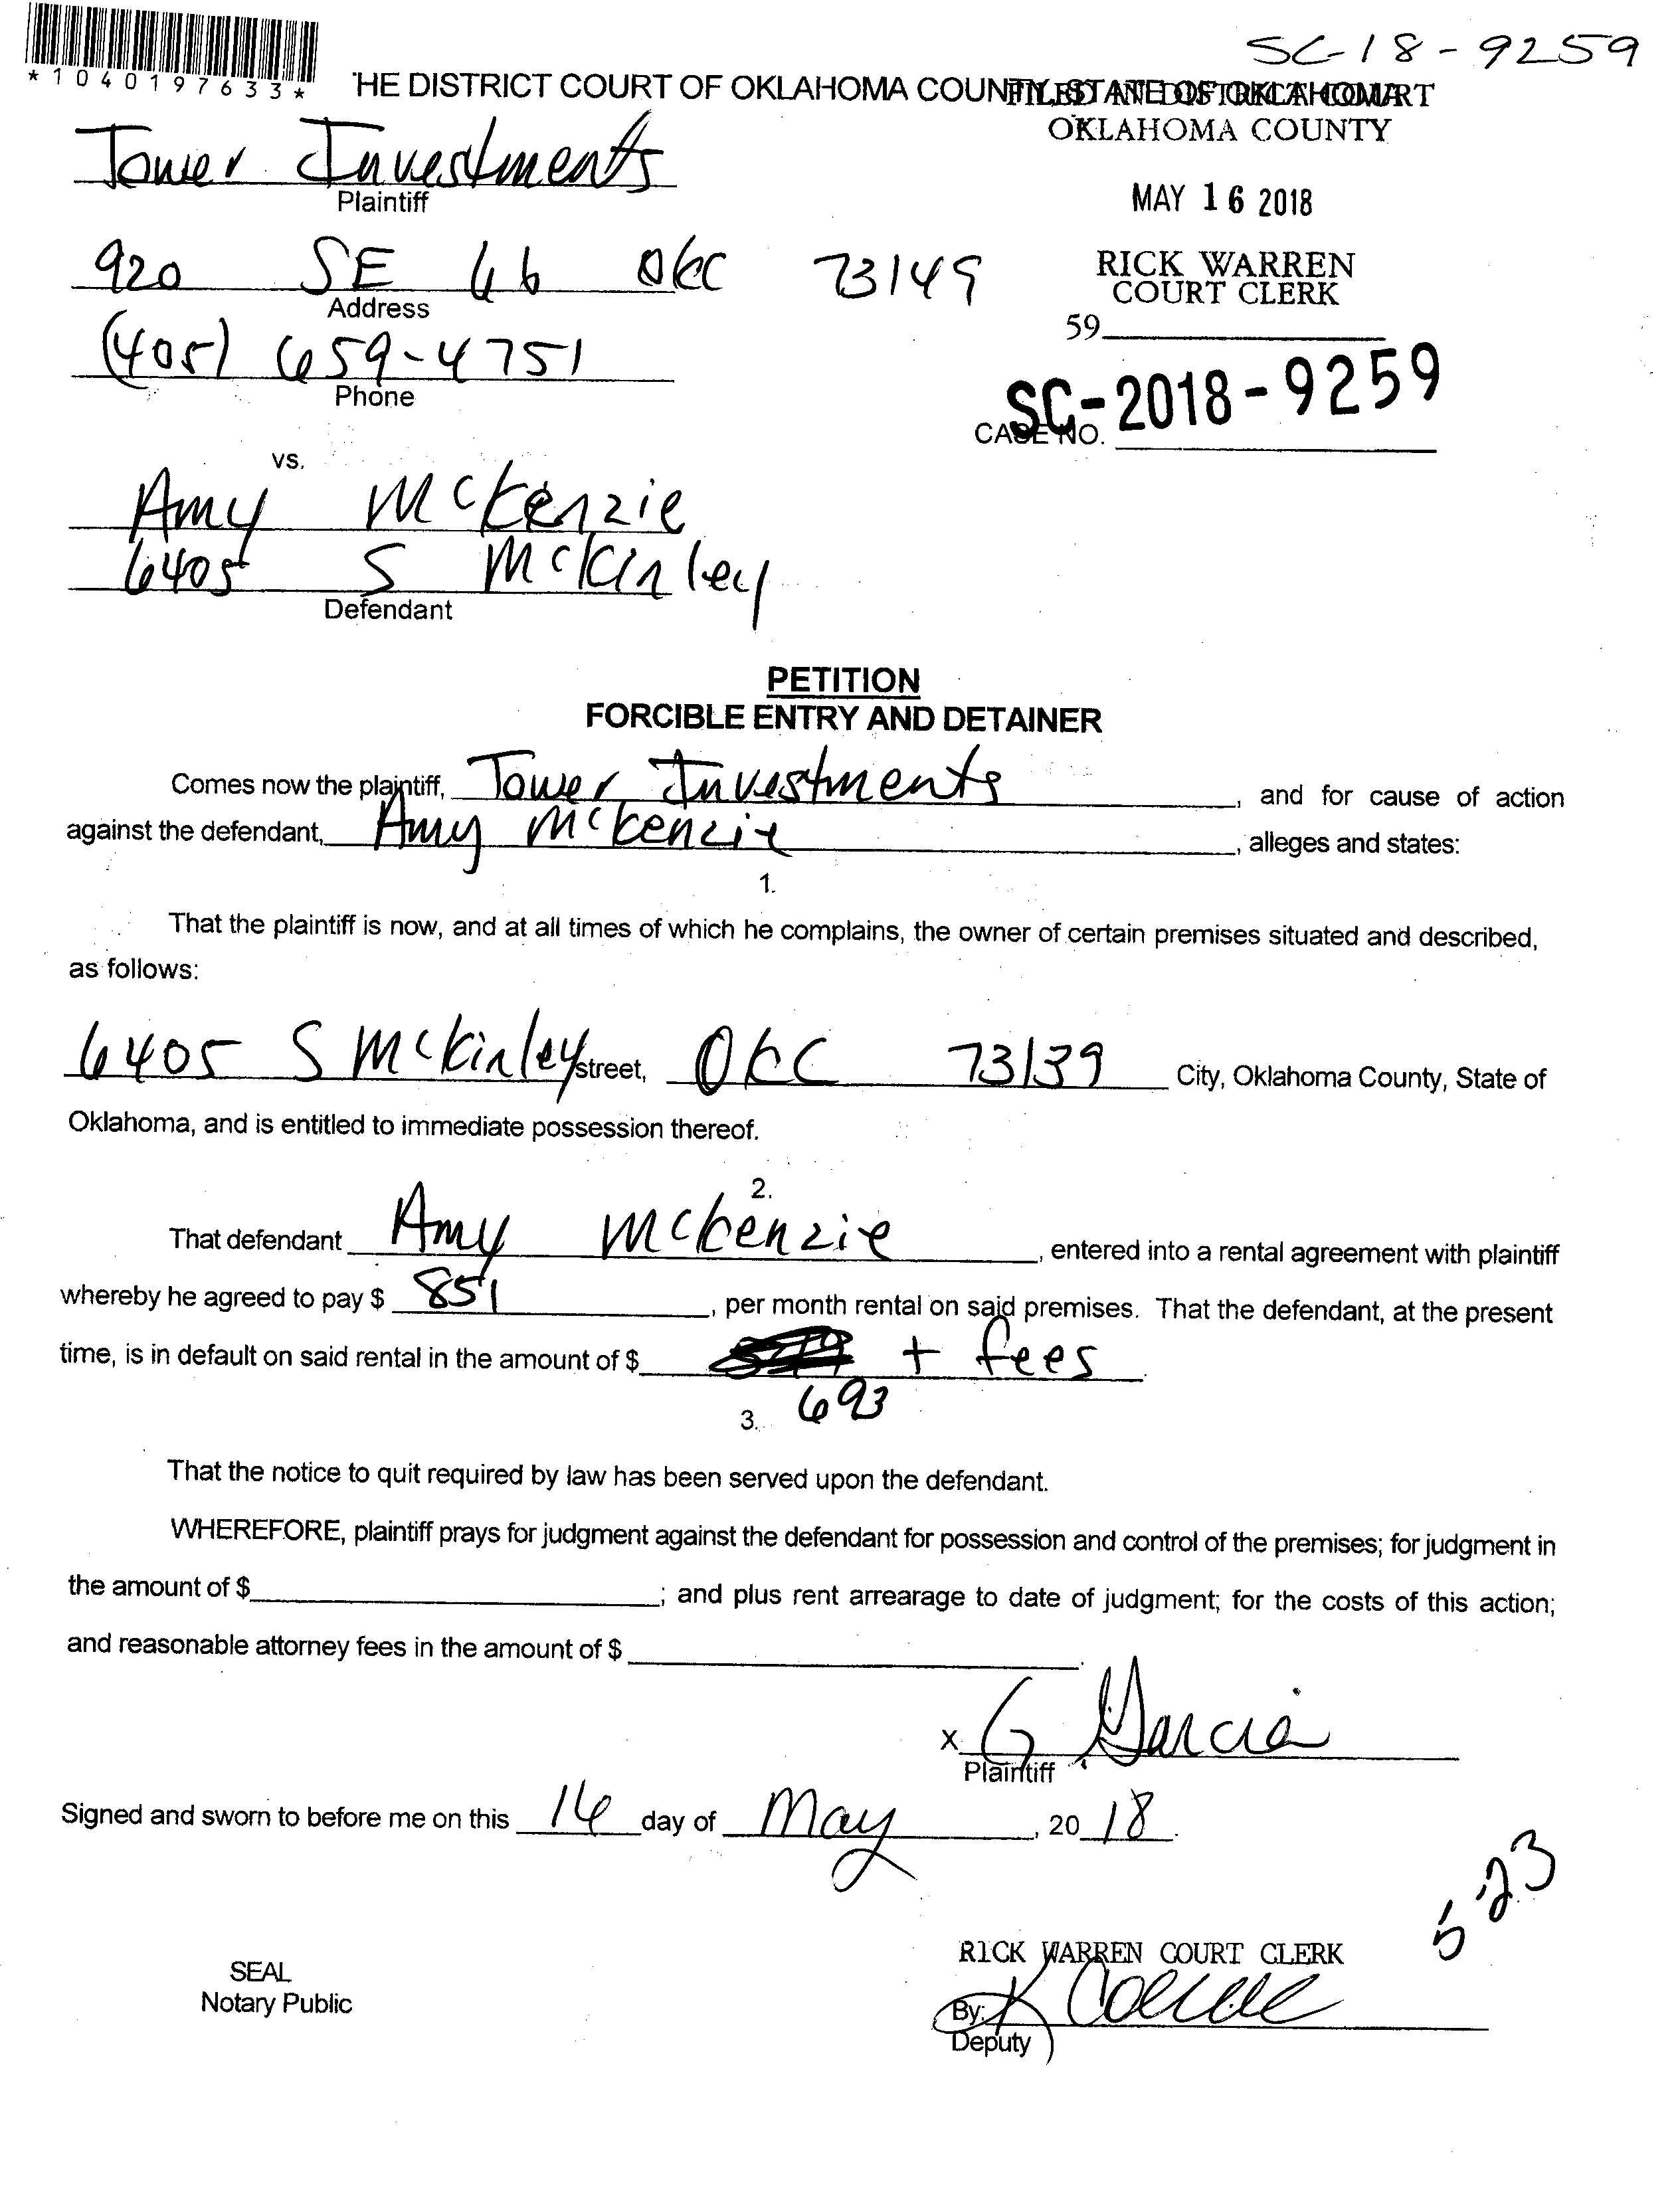 SC-18-9259
*1040197633*
HE DISTRICT COURT OF OKLAHOMA COUNTY, STATE OF OKLAHOMA
FILED IN DISTRICT COURT
OKLAHOMA COUNTY
Tower Investments
Plaintiff
MAY 16 2018
920 SE 66 OKC 73149
Address
RICK WARREN
COURT CLERK
59
(405) 659-4751
Phone
SC-2018-9259
CASE NO.
vs.
Amy McKenzie
6405 S McKinley
Defendant
PETITION
FORCIBLE ENTRY AND DETAINER
Comes now the plaintiff, Tower Investments, and for cause of action
against the defendant, Amy McKenzie, alleges and states:
1.
That the plaintiff is now, and at all times of which he complains, the owner of certain premises situated and described,
as follows:
6405 S McKinley street, OKC 73139 City, Oklahoma County, State of
Oklahoma, and is entitled to immediate possession thereof.
2.
That defendant Amy McKenzie, entered into a rental agreement with plaintiff
whereby he agreed to pay $ 851, per month rental on said premises. That the defendant, at the present
time, is in default on said rental in the amount of $ + fees.
693
3.
That the notice to quit required by law has been served upon the defendant.
WHEREFORE, plaintiff prays for judgment against the defendant for possession and control of the premises; for judgment in
the amount of $ ; and plus rent arrearage to date of judgment; for the costs of this action;
and reasonable attorney fees in the amount of $ .
x G Garcia
Plaintiff
Signed and sworn to before me on this 16 day of May, 2018.
5-23
RICK WARREN COURT CLERK
SEAL
Notary Public
By: K
Deputy